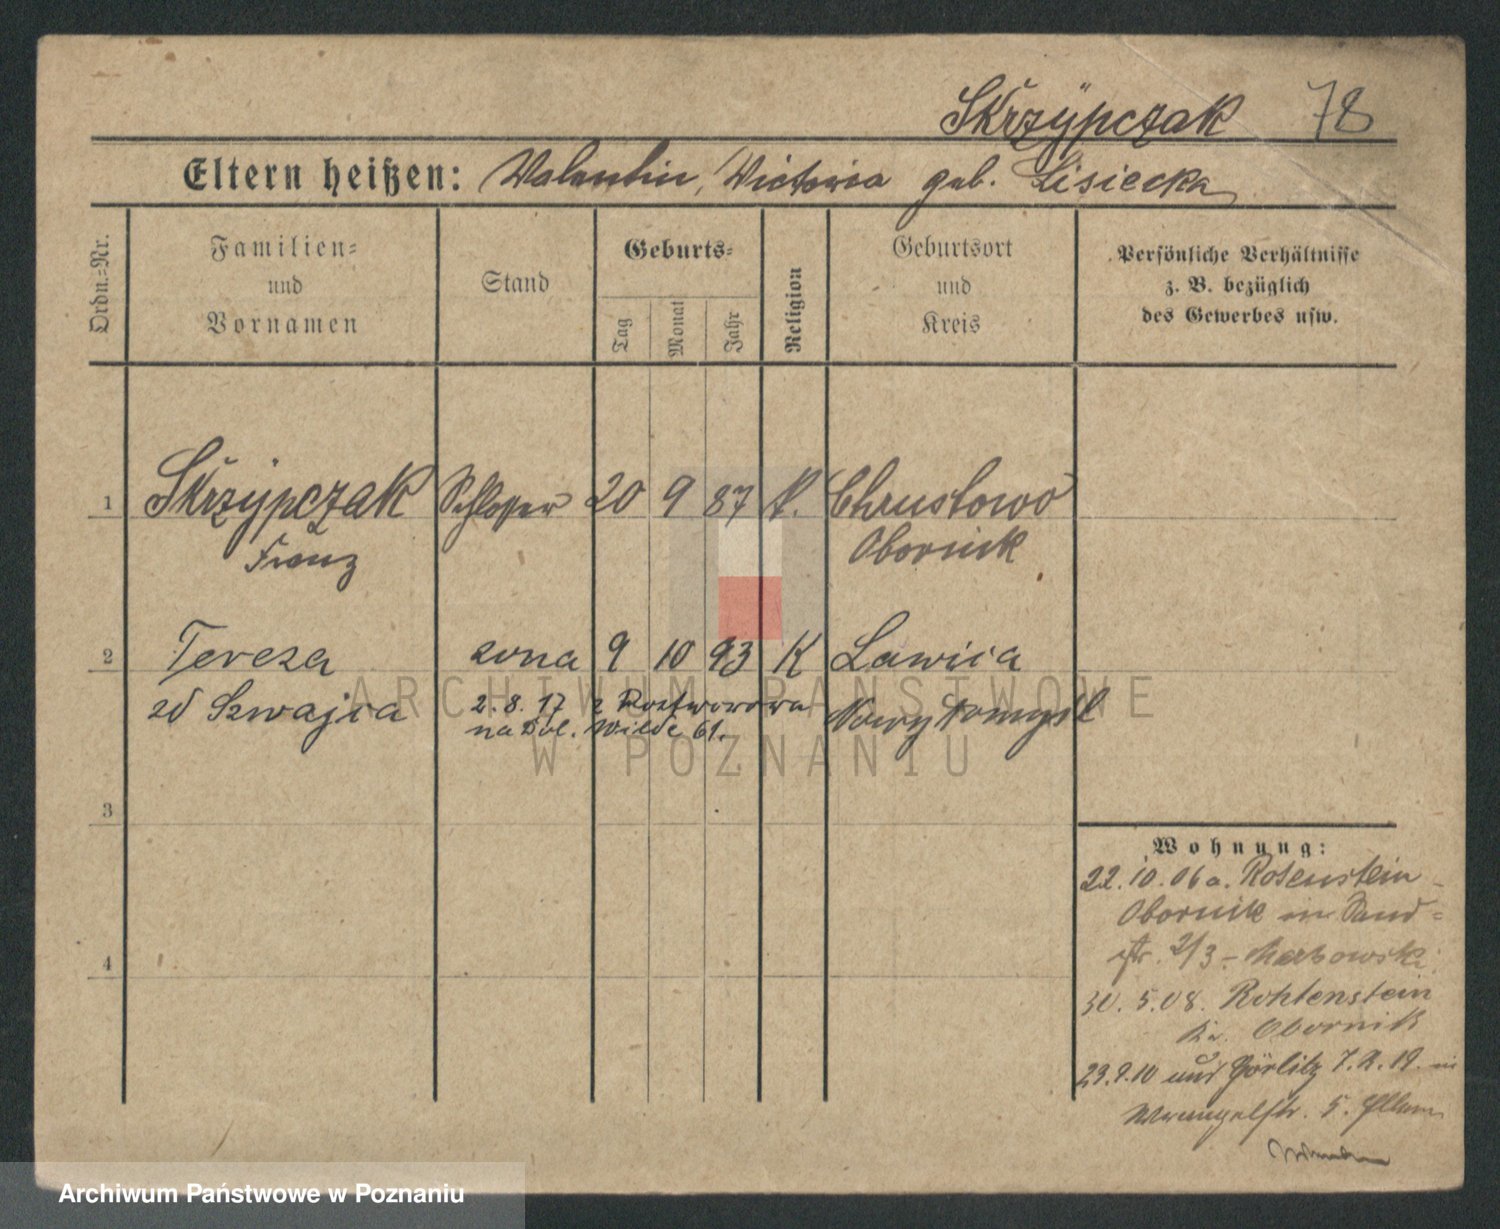 Skrzypczak 78
Eltern heißen: Valentin, Victoria geb. Lisiecka
Ordn.=Nr.
Familien=
und
Vornamen
Stand
Geburts=
Tag
Monat
Jahr
Religion
Geburtsort
und
Kreis
Persönliche Verhältnisse
z. B. bezüglich
des Gewerbes usw.
1 Skrzypczak Schlosser 20 9 87 k. Chrustowo
Franz Obornik
2 Tereza zona 9 10 93 K Lawica
zd Szwajca 2. 8. 17 z Roztworowa Nowy Tomysl
na Dol. Wilde 61.
3
4
Wohnung:
22. 10. 06 a. Rosenstein
Obornik in Sand=
str. 2/3 - Markowski
30. 5. 08. Rohtenstein
Kr. Obornik
29.9.10 und Görlitz 7. 2. 19. in
Wrangelstr. 5.
ARCHIWUM PAŃSTWOWE
W POZNANIU
Archiwum Państwowe w Poznaniu